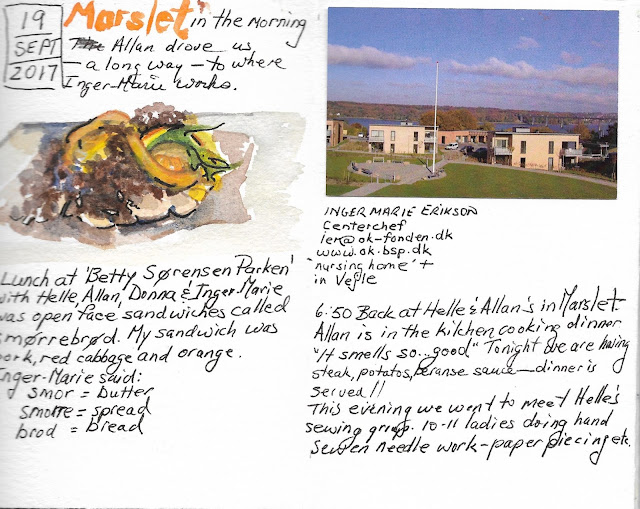 19
SEPT
2017
Marslet in the Morning
The Allan drove us
— a long way — to where
Inger-Marie works.
Lunch at 'Betty Sørensen Parken'
with Helle, Allan, Donna & Inger-Marie
was open face sandwiches called
smørrebrød. My sandwich was
pork, red cabbage and orange.
Inger-Marie said:
smor = butter
smorre = spread
brod = bread
INGER MARIE ERIKSON
Centerchef
ier@ok-fonden.dk
www.ok-bsp.dk
'nursing home' +
in Vejle
6:50 Back at Helle & Allan's in Marslet.
Allan is in the kitchen cooking dinner
"It smells so...good" Tonight we are having
steak, potatos, beranse sauce — dinner is
served!!
This evening we went to meet Helle's
sewing group. 10-11 ladies doing hand
sewen needle work - paper piecing etc.